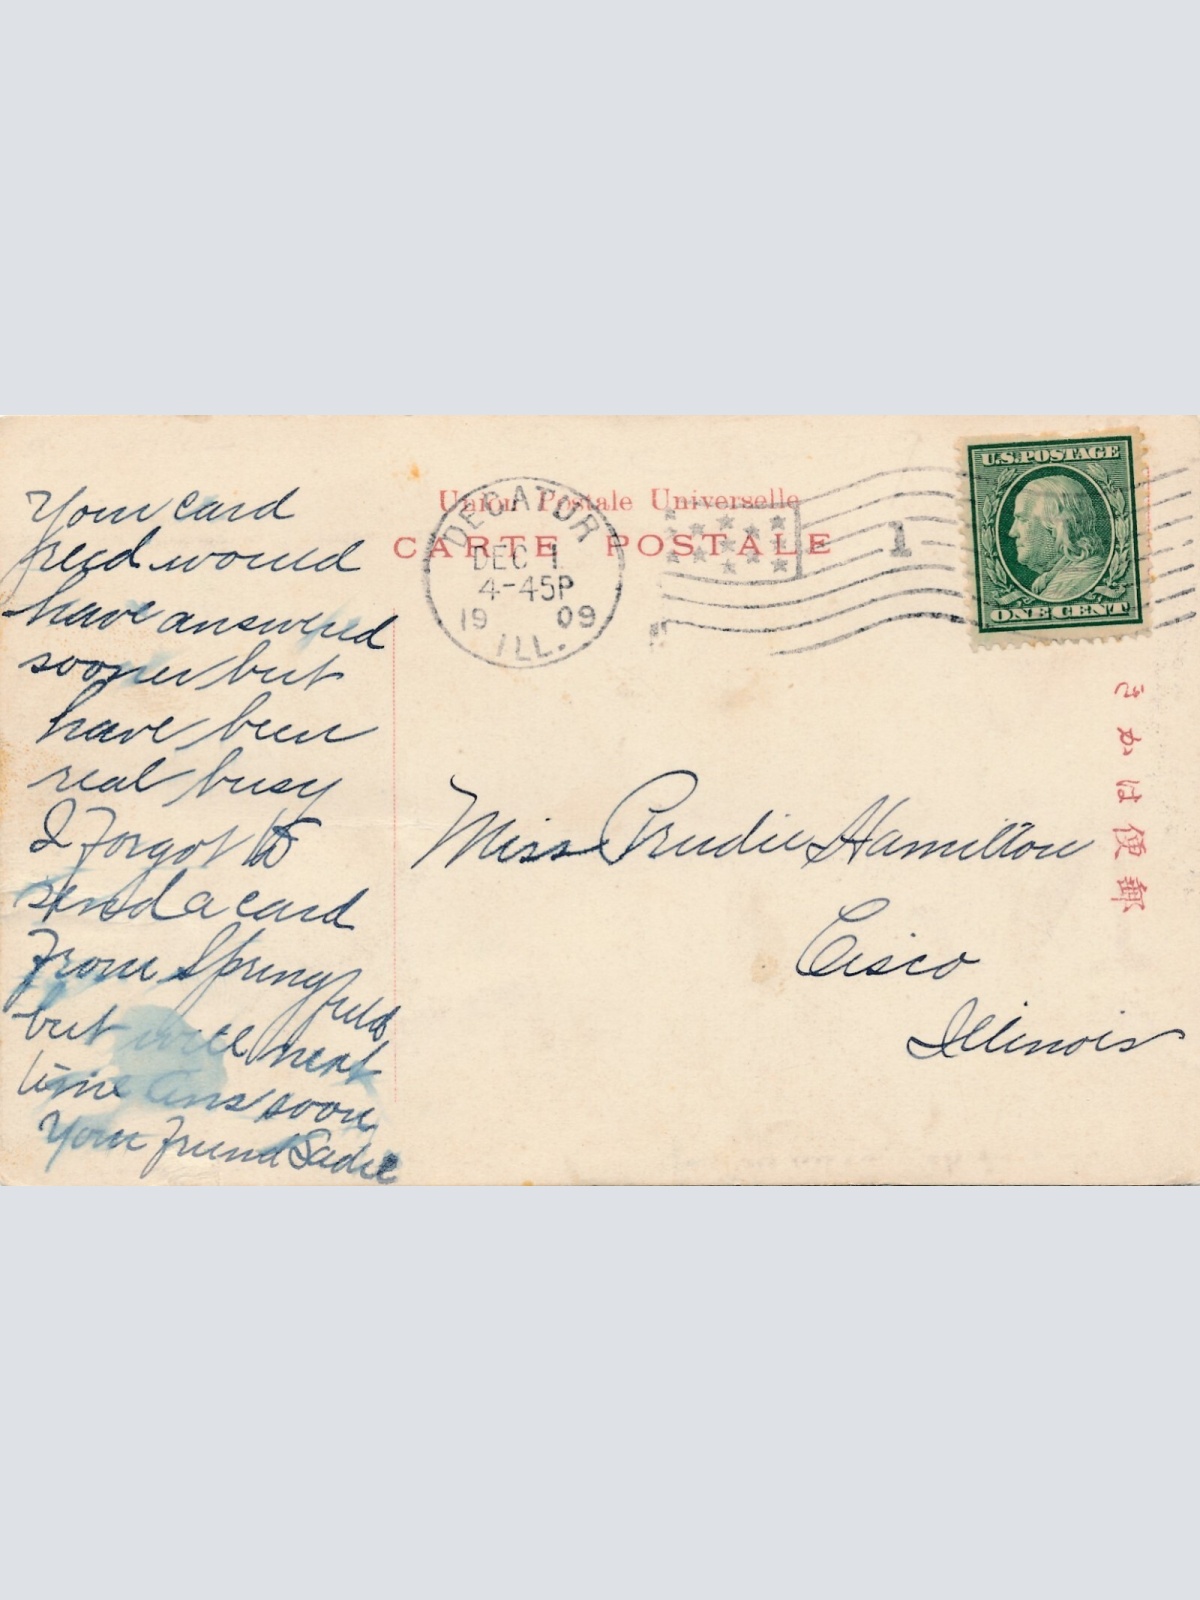 Union Postale Universelle
CARTE POSTALE
DECATUR
DEC 1
4-45P
1909
ILL.
1
U.S. POSTAGE
ONE CENT
郵便はかき
Your card
recd would
have answered
sooner but
have been
real busy
I Forgot to
send a card
From Springfield
but will next
time Ans soon
Your Friend Sadie
Miss Prudie Hamilton
Cisco
Illinois